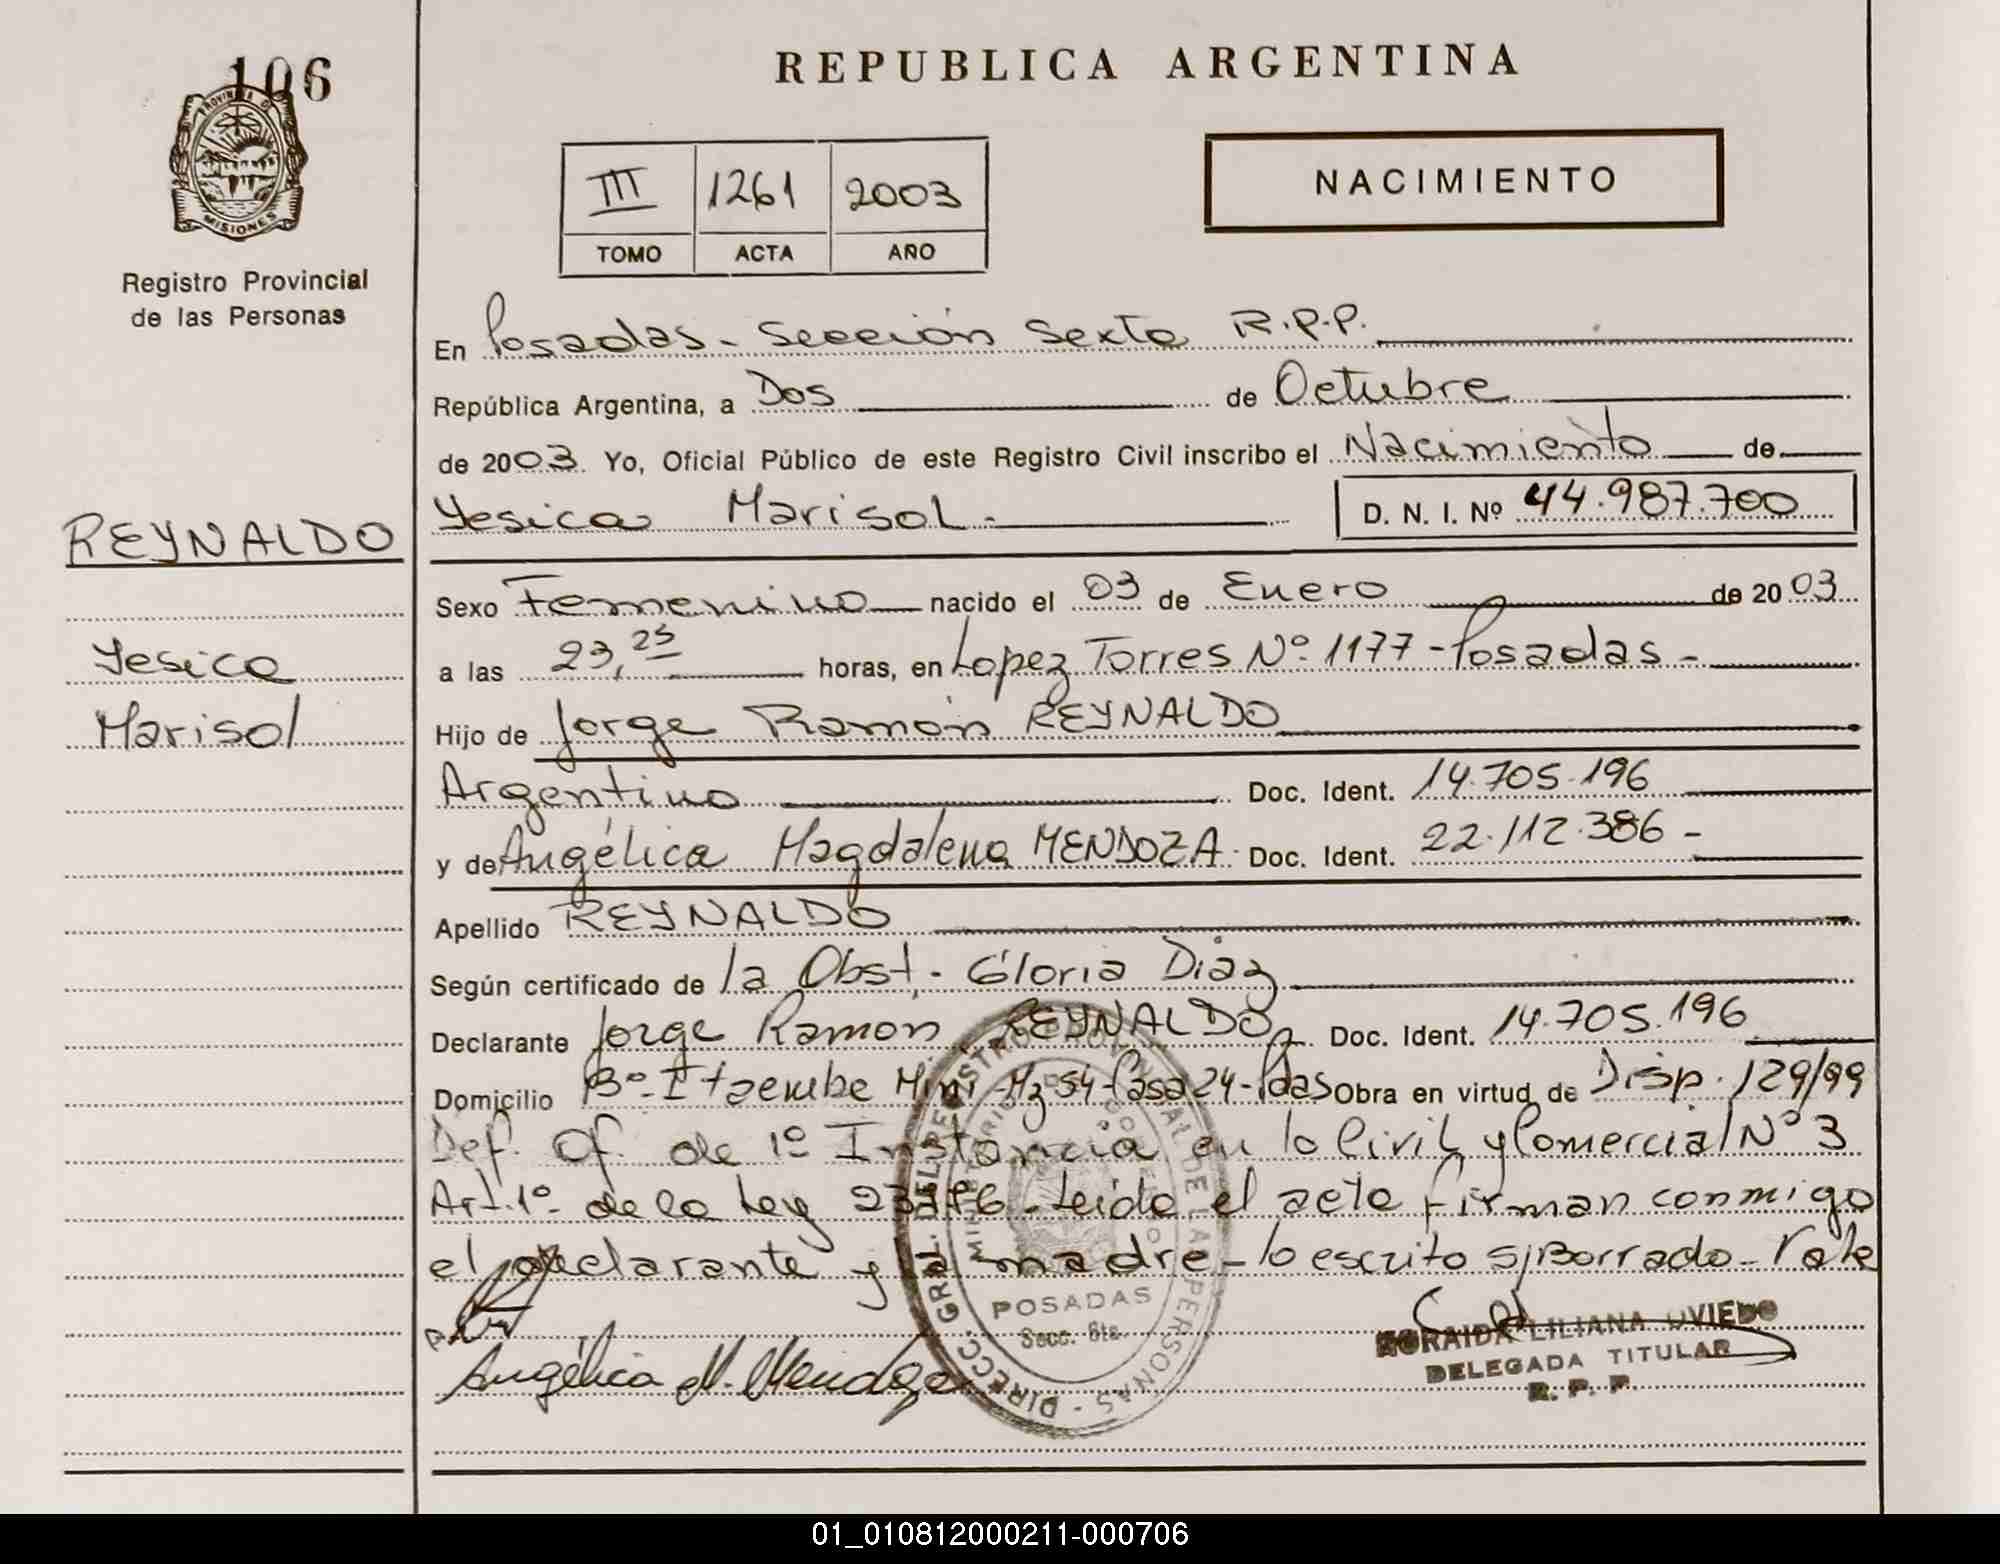 106
PROVINCIA DE
MISIONES
Registro Provincial
de las Personas
REYNALDO
Yesica
Marisol
REPUBLICA ARGENTINA
III 1261 2003
TOMO ACTA AÑO
NACIMIENTO
En Posadas - Sección Sexta R.P.P.
República Argentina, a Dos de Octubre
de 2003. Yo, Oficial Público de este Registro Civil inscribo el Nacimiento de
Yesica Marisol - D. N. I. Nº 44.987.700
Sexo Femenino nacido el 03 de Enero de 2003
a las 23,25 horas, en Lopez Torres Nº 1177 - Posadas -
Hijo de Jorge Ramón REYNALDO
Argentino Doc. Ident. 14.705.196
y de Angélica Magdalena MENDOZA - Doc. Ident. 22.112.386 -
Apellido REYNALDO
Según certificado de la Obst. Gloria Diaz
Declarante Jorge Ramon REYNALDO Doc. Ident. 14.705.196
Domicilio Bº Itaembe Mini - Mz 54 - Casa 24 - Pdas Obra en virtud de Disp. 129/99
Def. Of. de 1º Instancia en lo Civil y Comercial Nº 3
Art. 1º de la Ley - Leida el acta firman conmigo
el declarante y la madre - lo escrito s/Borrado - Vale
Angélica M. Mendoza
DIRECC. GRAL. DEL REGISTRO PROVINCIAL DE LAS PERSONAS
POSADAS
Secc. 6ta.
ZORAIDA LILIANA OVIEDO
DELEGADA TITULAR
R. P. P.
01_010812000211-000706